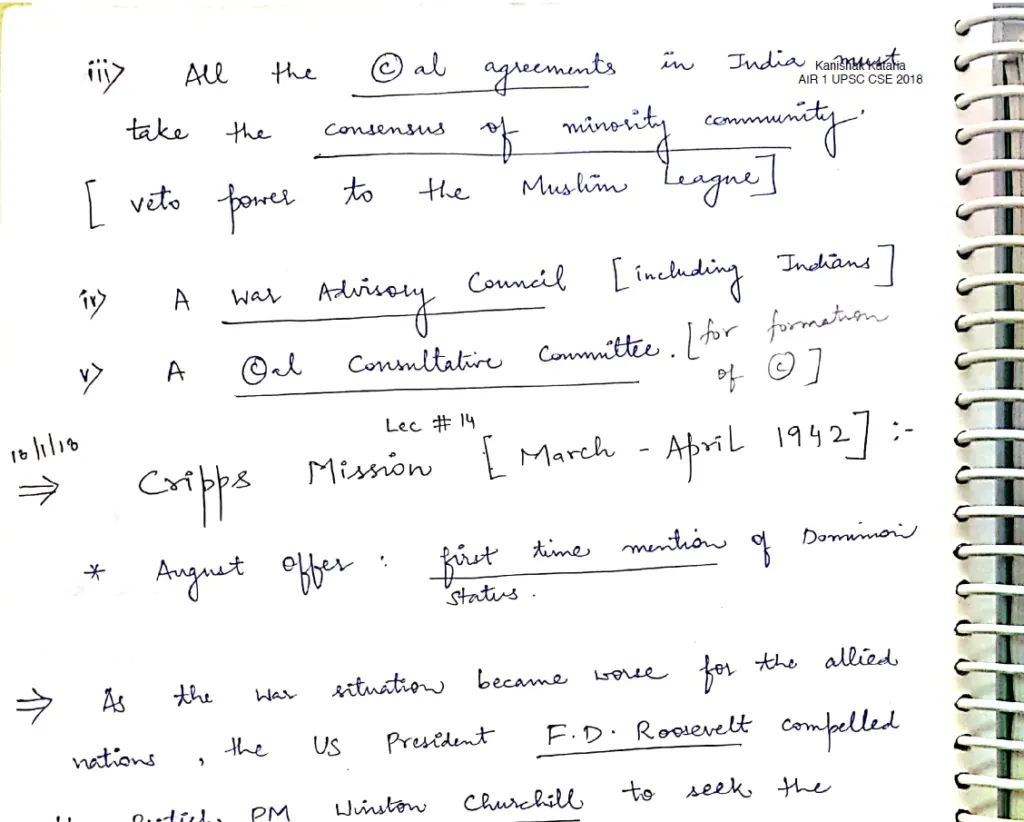 iii) All the ©al agreements in India must
Kanishak Kataria
AIR 1 UPSC CSE 2018
take the consensus of minority community.
[veto power to the Muslim League]
iv) A war Advisory Council [including Indians]
v) A ©al Consultative Committee. [for formation
of ©]
Lec # 14
18/1/18
⇒ Cripps Mission [March - April 1942] :-
* August offer : first time mention of Dominion
status.
⇒ As the war situation became worse for the allied
nations, the US President F.D. Roosevelt compelled
PM Winston Churchill to seek the